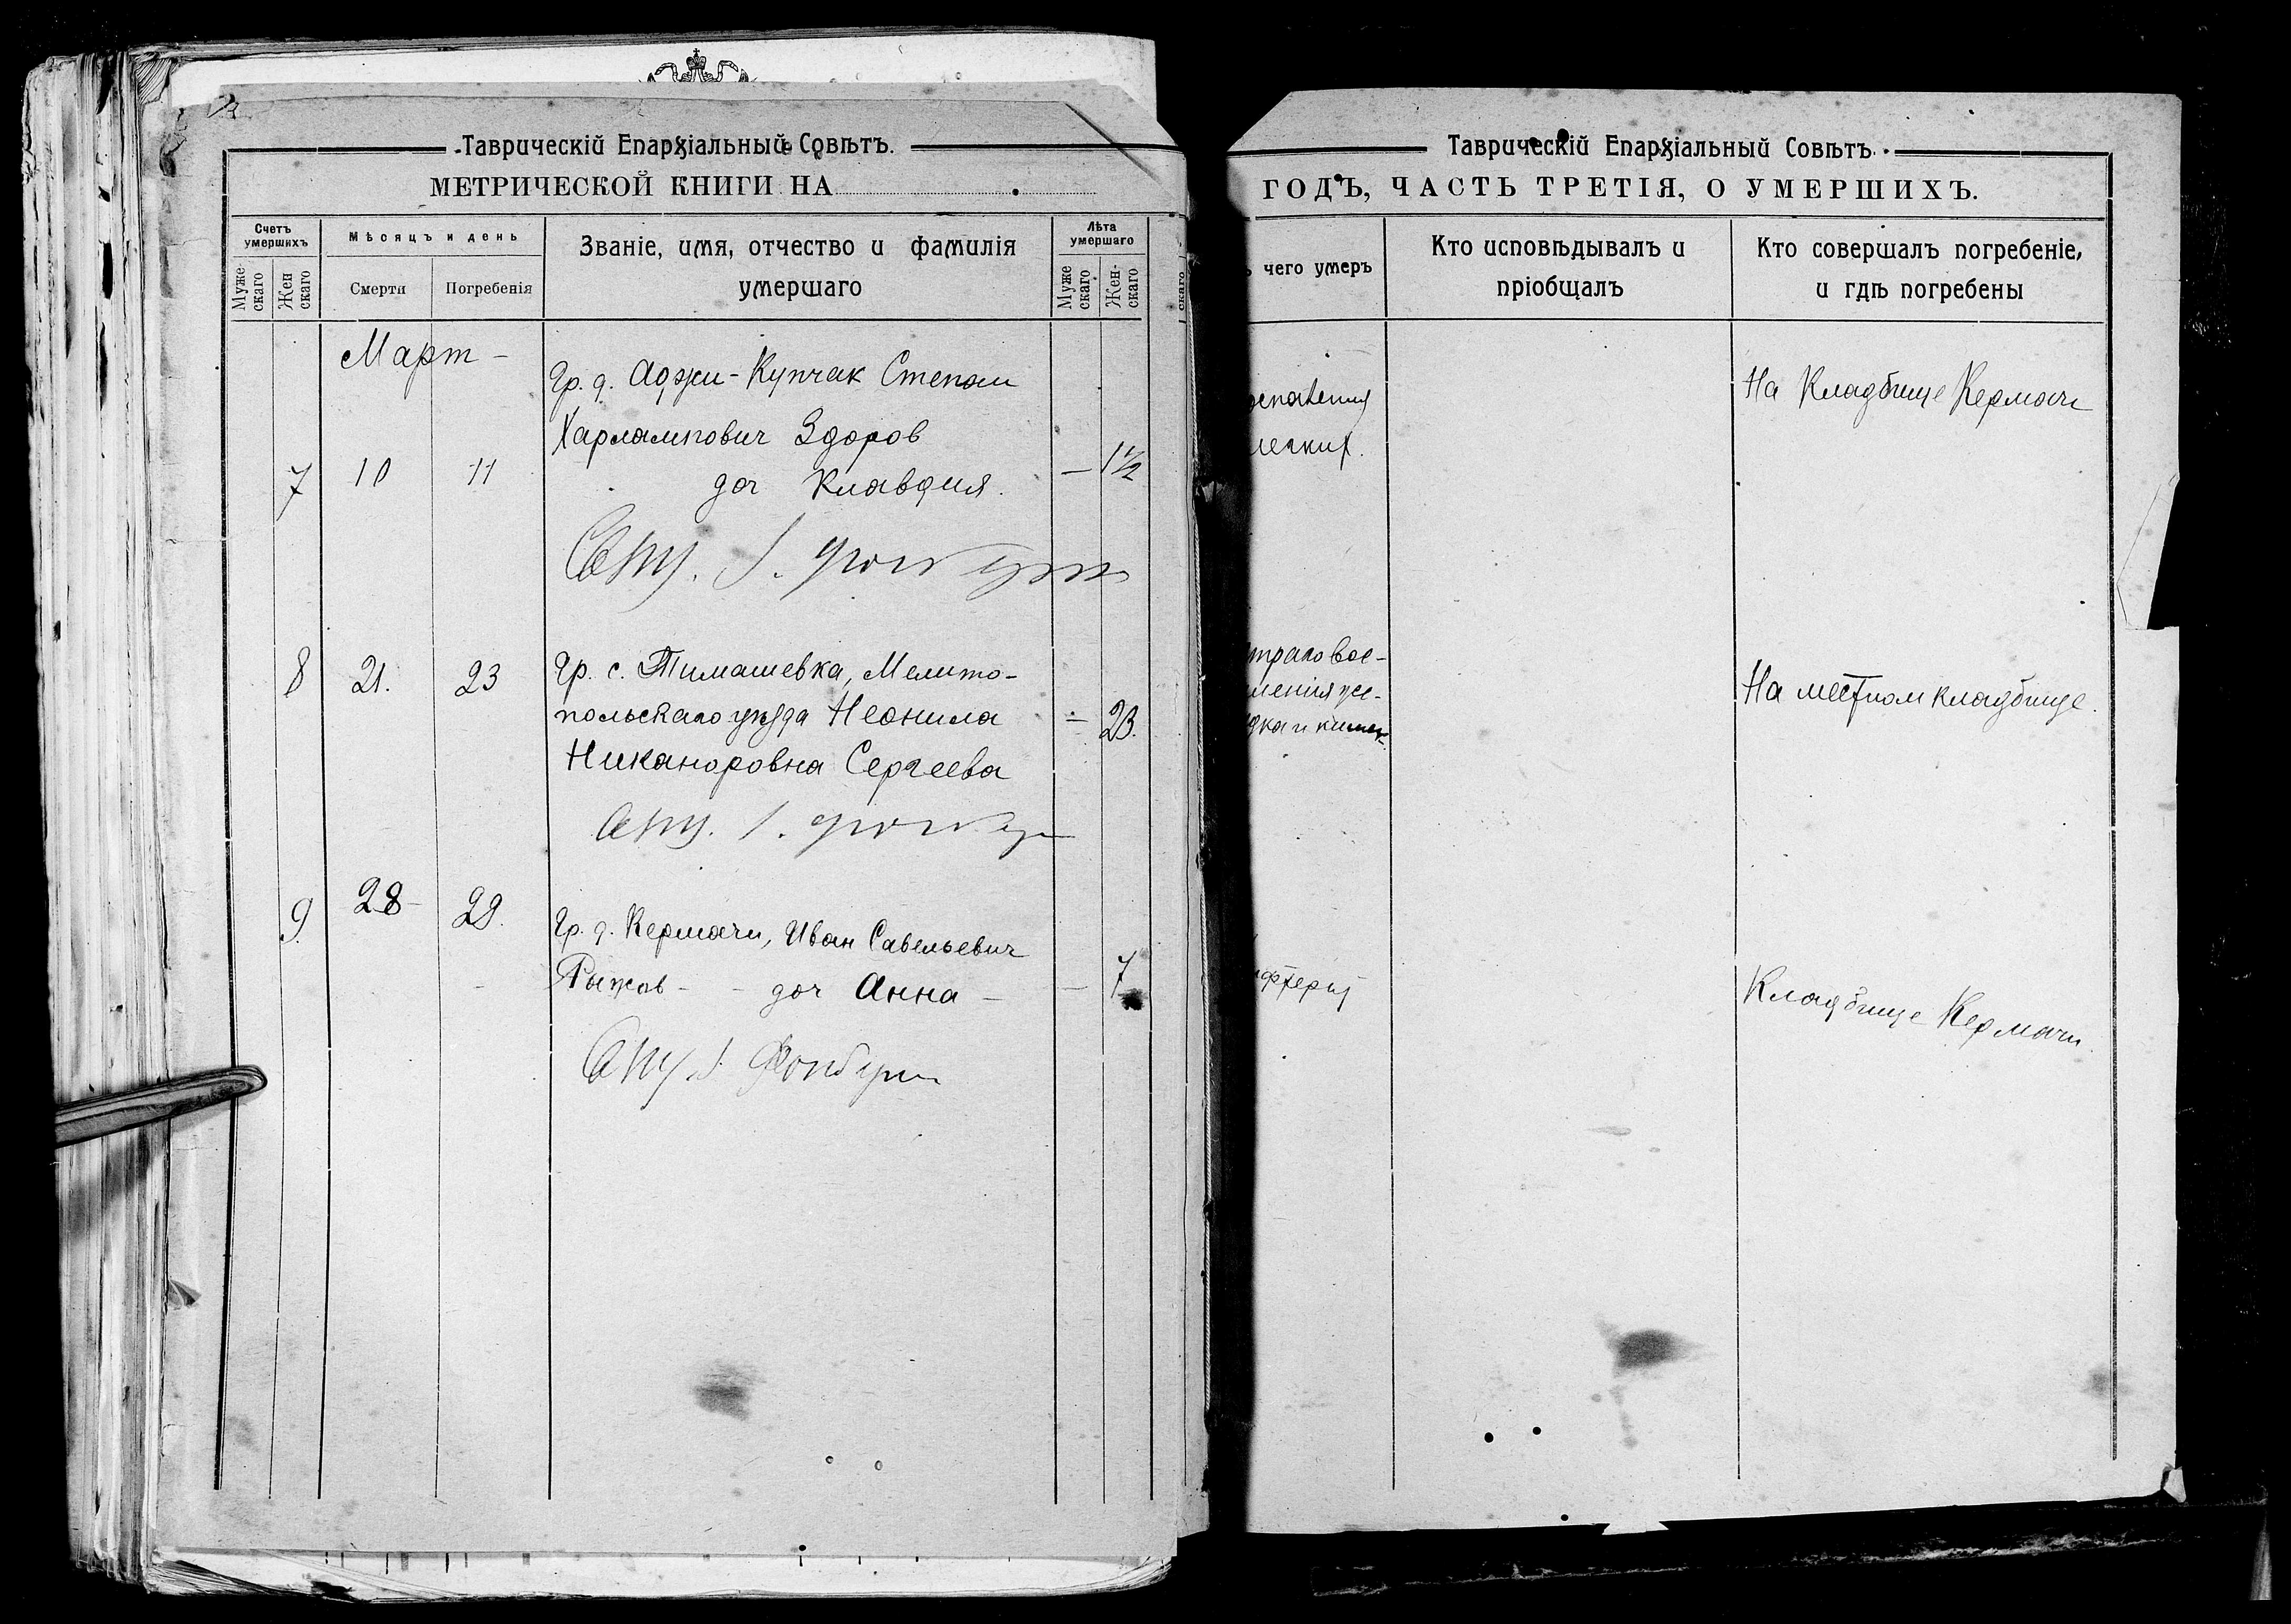 Таврическій Епархіальный Совѣтъ.
МЕТРИЧЕСКОЙ КНИГИ НА
Счетъ умершихъ
Муже скаго
Жен скаго
Мѣсяцъ и день
Смерти
Погребенія
Званіе, имя, отчество и фамилія
умершаго
Лѣта умершаго
Муже скаго
Жен- скаго
скаго
Март -
Гр. д. Аджи-Купчак Степан
Харлампович Здоров
7 10 11 доч Клавдия. - 1 1/2
8 21. 23 Гр. с. Тимашевка, Мелито-
польскаго уѣзда Неонила = 23.
Никаноровна Сергеева
9. 28 - 29. Гр. д. Кермачи, Иван Савельевич
Рыжов - - доч Анна - - 7
Таврическій Епархіальный Совѣтъ.
ГОДЪ, ЧАСТЬ ТРЕТІЯ, О УМЕРШИХЪ.
чего умеръ
Кто исповѣдывалъ и
пріобщалъ
Кто совершалъ погребеніе,
и гдѣ погребены
На Кладбище Кермачи
легких.
На местном кладбище.
Кладбище Кермачи.